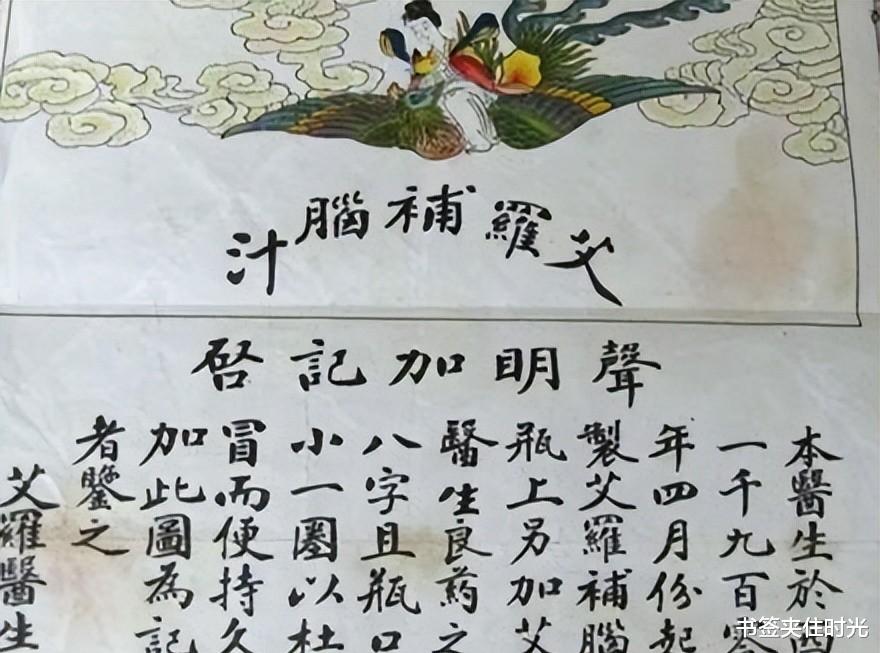 艾羅補腦汁
聲明加記啓
本醫生於
一千九百零
年四月份起
製艾羅補腦
瓶上另加艾
醫生良葯之
八字且瓶口
小一圈以杜
冒而便持久
加此圖為記
者鑒之
艾羅醫生
书签夹住时光